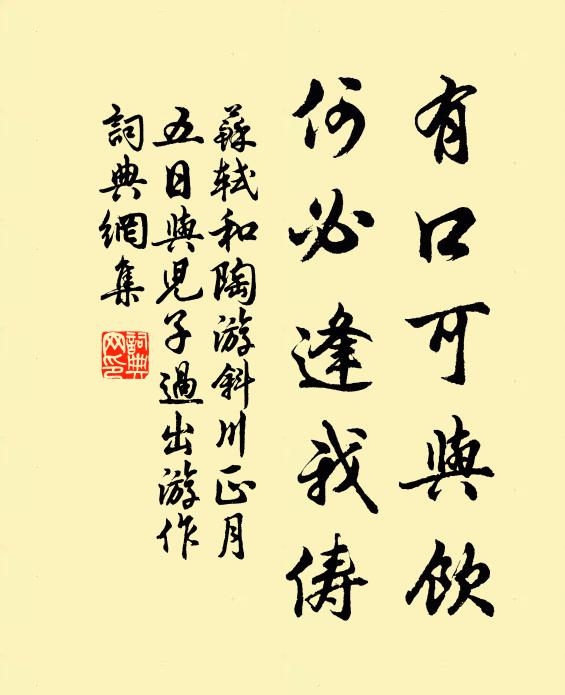 有口可與飲
何必逢我儔
蘇軾和陶游斜川正月
五日與兒子過出游作
詞典網集
詞典
网印